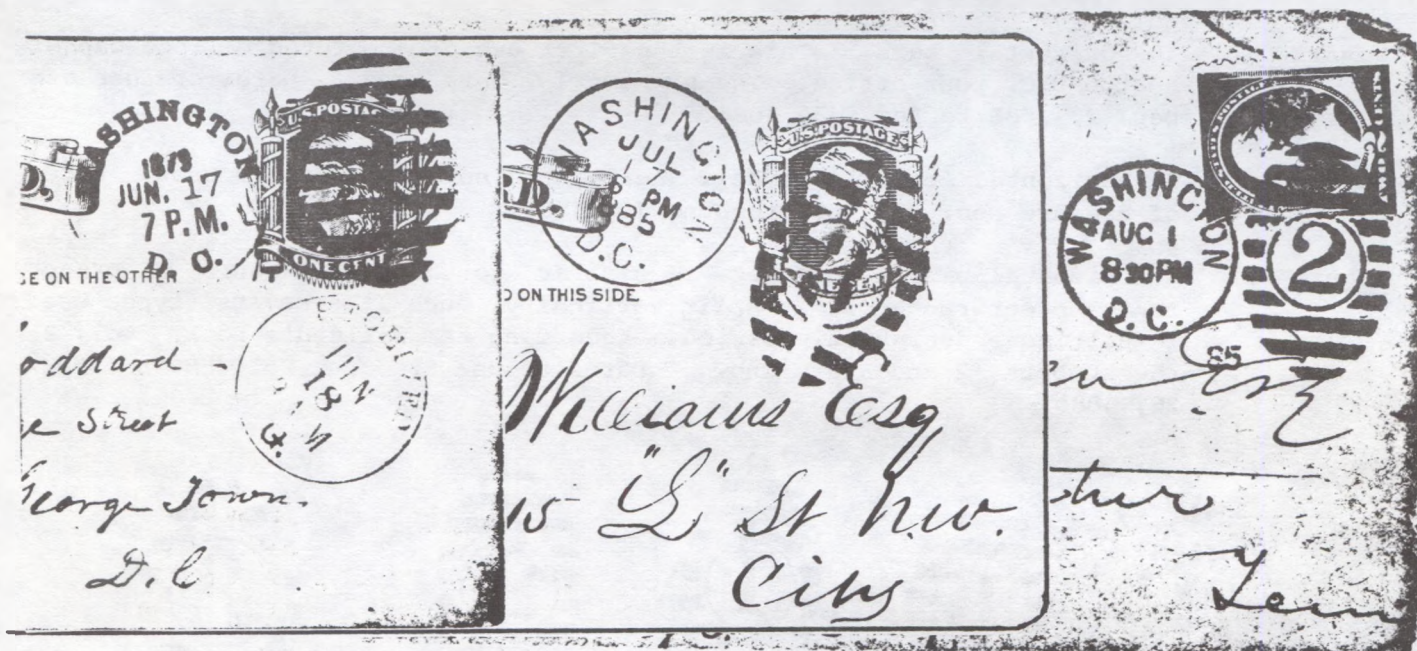 D.
WASHINGTON
1879
JUN. 17
7 P.M.
D. C.
U.S. POSTAGE
ONE CENT
GE ON THE OTHER
RECEIVED
18
4
oddard
e Street
George Town.
D.C
D.
WASHINGTON
JUL
1
6 PM
1885
D.C.
U.S. POSTAGE
D ON THIS SIDE.
Williams Esq
15 "L" St N.W.
City
WASHINGTON
AUG 1
8 30 PM
D.C.
85
2
2
Esq
Tenn